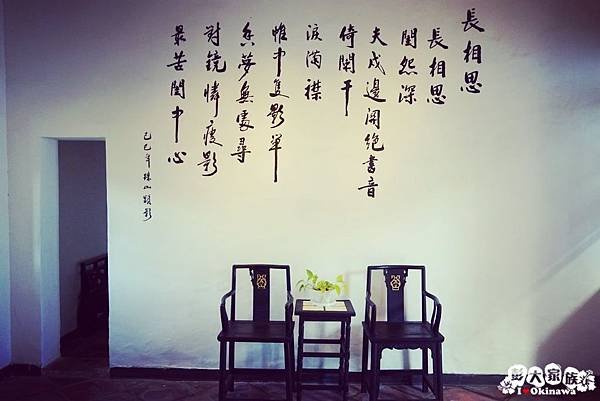 長相思
長相思
閨怨深
夫戍邊關絕書音
倚闌干
淚滿襟
帷中隻影單
香夢無處尋
對鏡憐瘦影
最苦閨中心
己巳年珠山顯影
大家族
I Okinawa